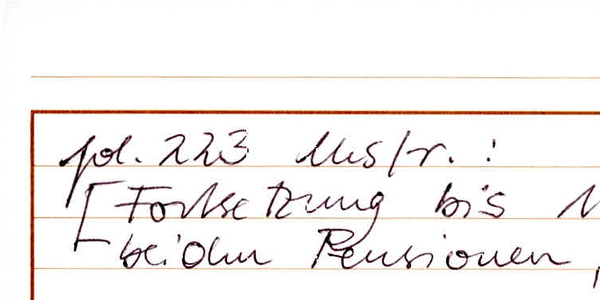 fol. 223 Mustr. :
[Fortsetzung bis
beiden Pensionen,